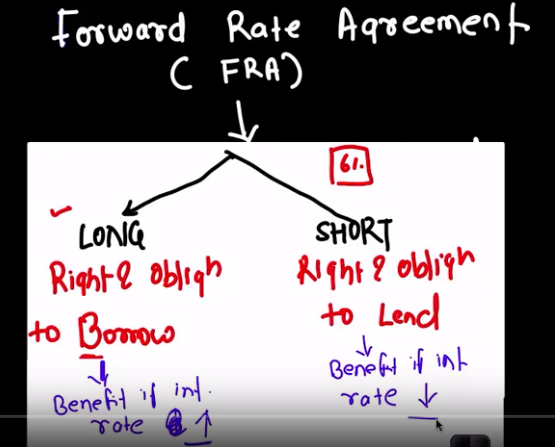 Forward Rate Agreement
( FRA)
6%
LONG
Right & obligh
to Borrow
Benefit if int.
rate ↑
SHORT
Right & obligh
to Lend
Benefit if int
rate ↓